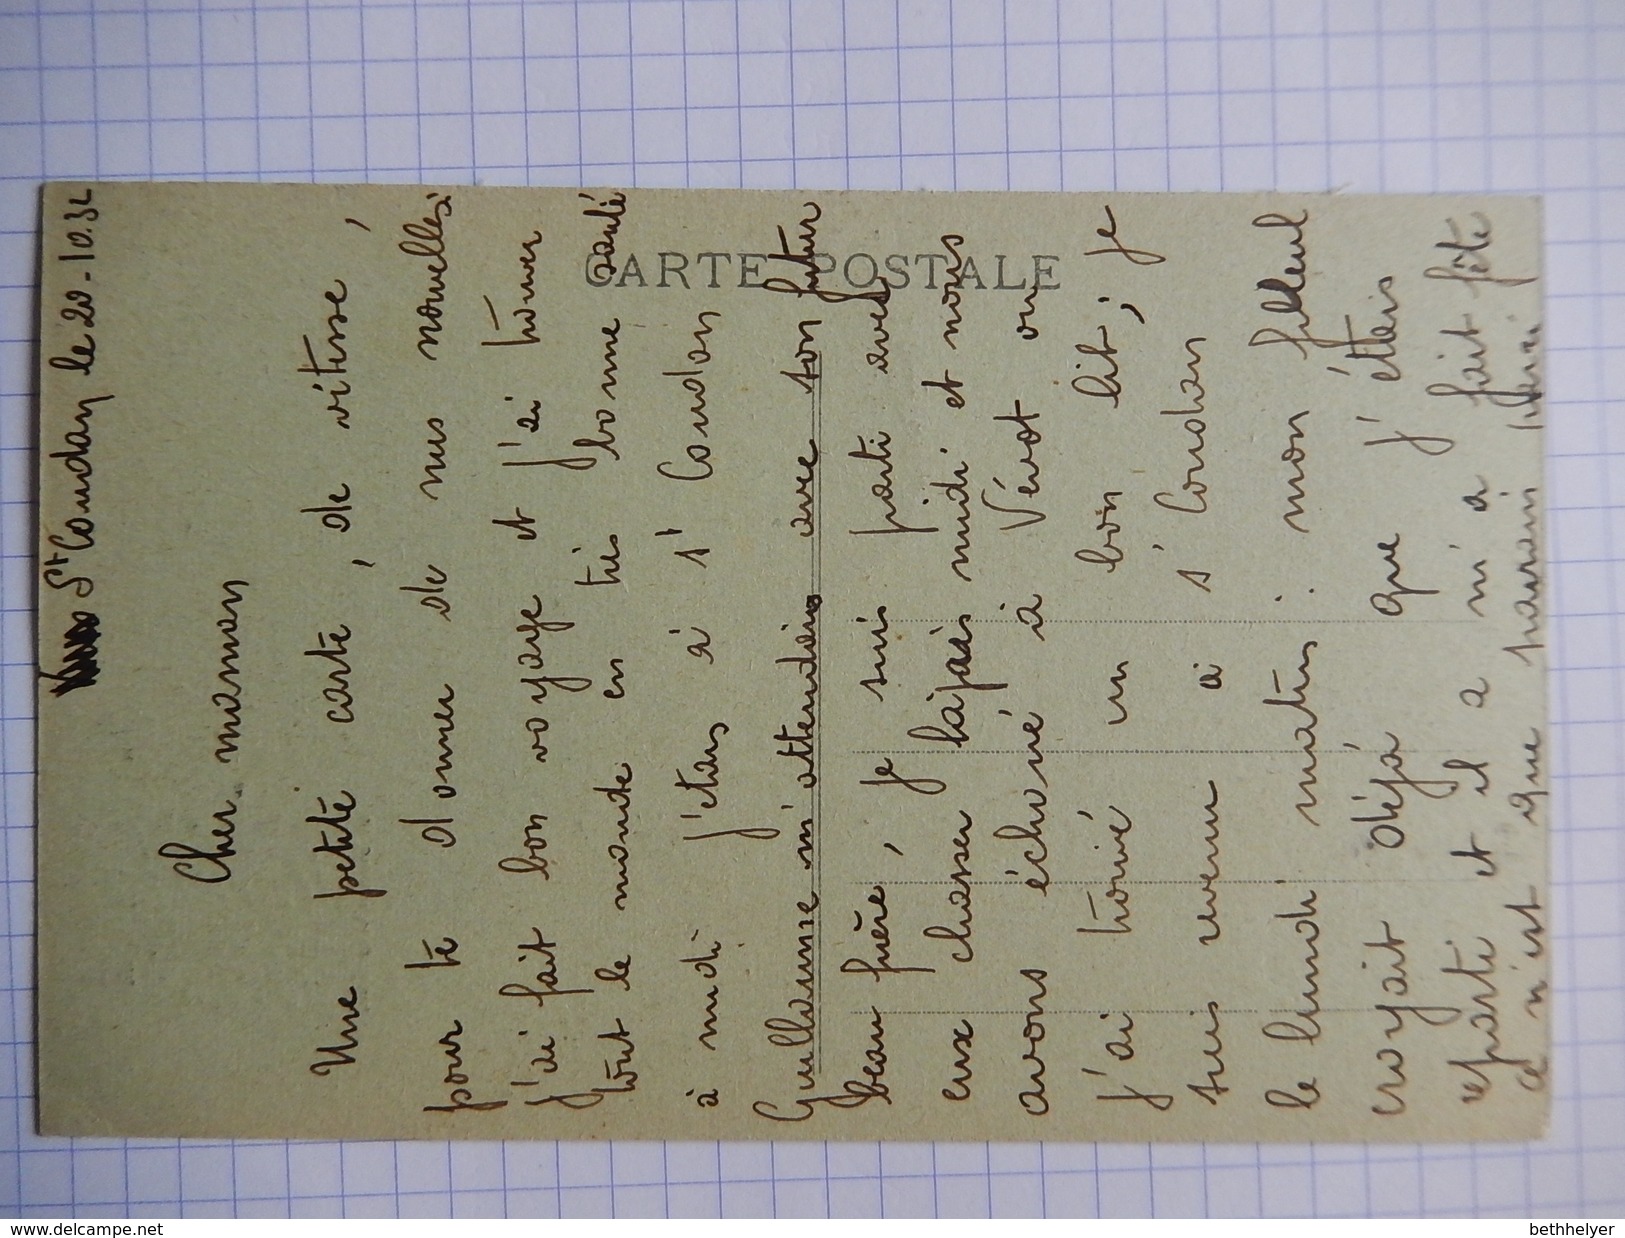 St Coudan le 20-10.32
Cher maman
Une petite carte, de vitesse,
pour te donner de mes nouvelles
j'ai fait bon voyage et j'ai trouver
tout le monde en très bonne santé
à midi j'etais à St Coudan
Guillaume m'attendais avec son futur
beau frère, je suis parti avec
eux chasser l'après midi et nous
avons échoué à Vérot ou
j'ai trouvé un bon lit; je
suis revenu a St Coudan
le lundi matin. mon filleul
croyait déjà que j'étais
reparti et il a m'a fait fête
ce n'est que parain
CARTE POSTALE
www.delcampe.net
bethhelyer